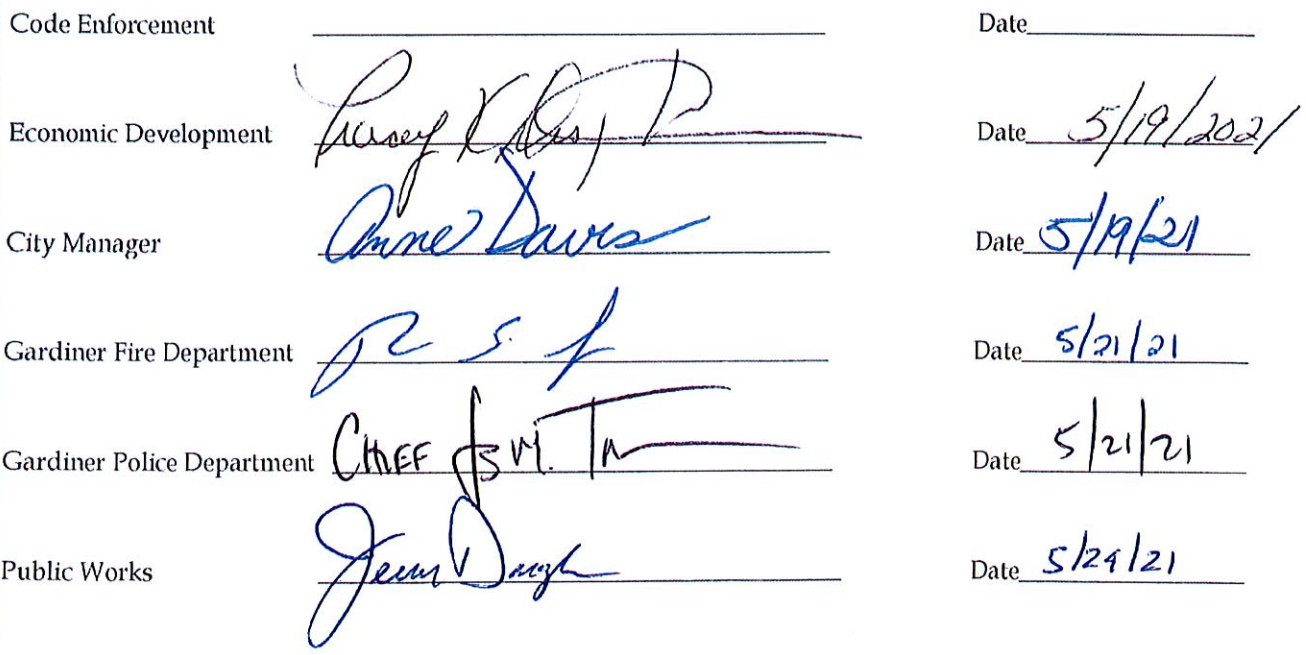 Code Enforcement Date
Economic Development Date 5/19/2021
City Manager Anne Davis Date 5/19/21
Gardiner Fire Department Date 5/21/21
Gardiner Police Department CHIEF Date 5/21/21
Public Works Date 5/24/21